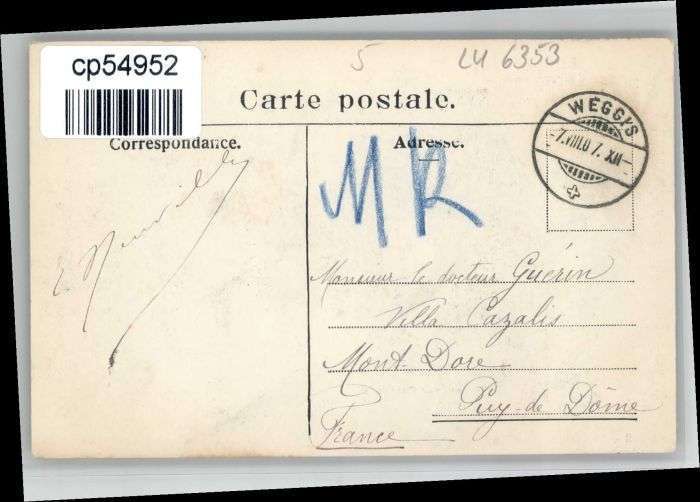 cp54952
5
LU 6353
Carte postale.
WEGGIS
7.VIII.07. XII
Correspondance.
Adresse.
MR
Monsieur le docteur Guérin
Villa Cazalis
Mont-Dore
Puy-de Dôme
France